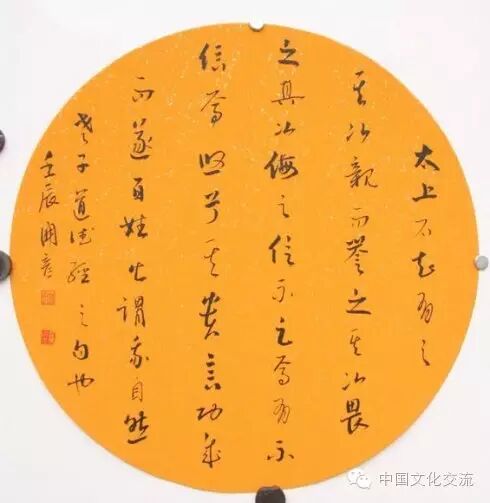 太上不知有之
其次親而譽之其次畏
之其次侮之信不足焉有不
信焉兮其貴言功成
而遂百姓皆謂我自然
老子道德經之句也
壬辰
中国文化交流